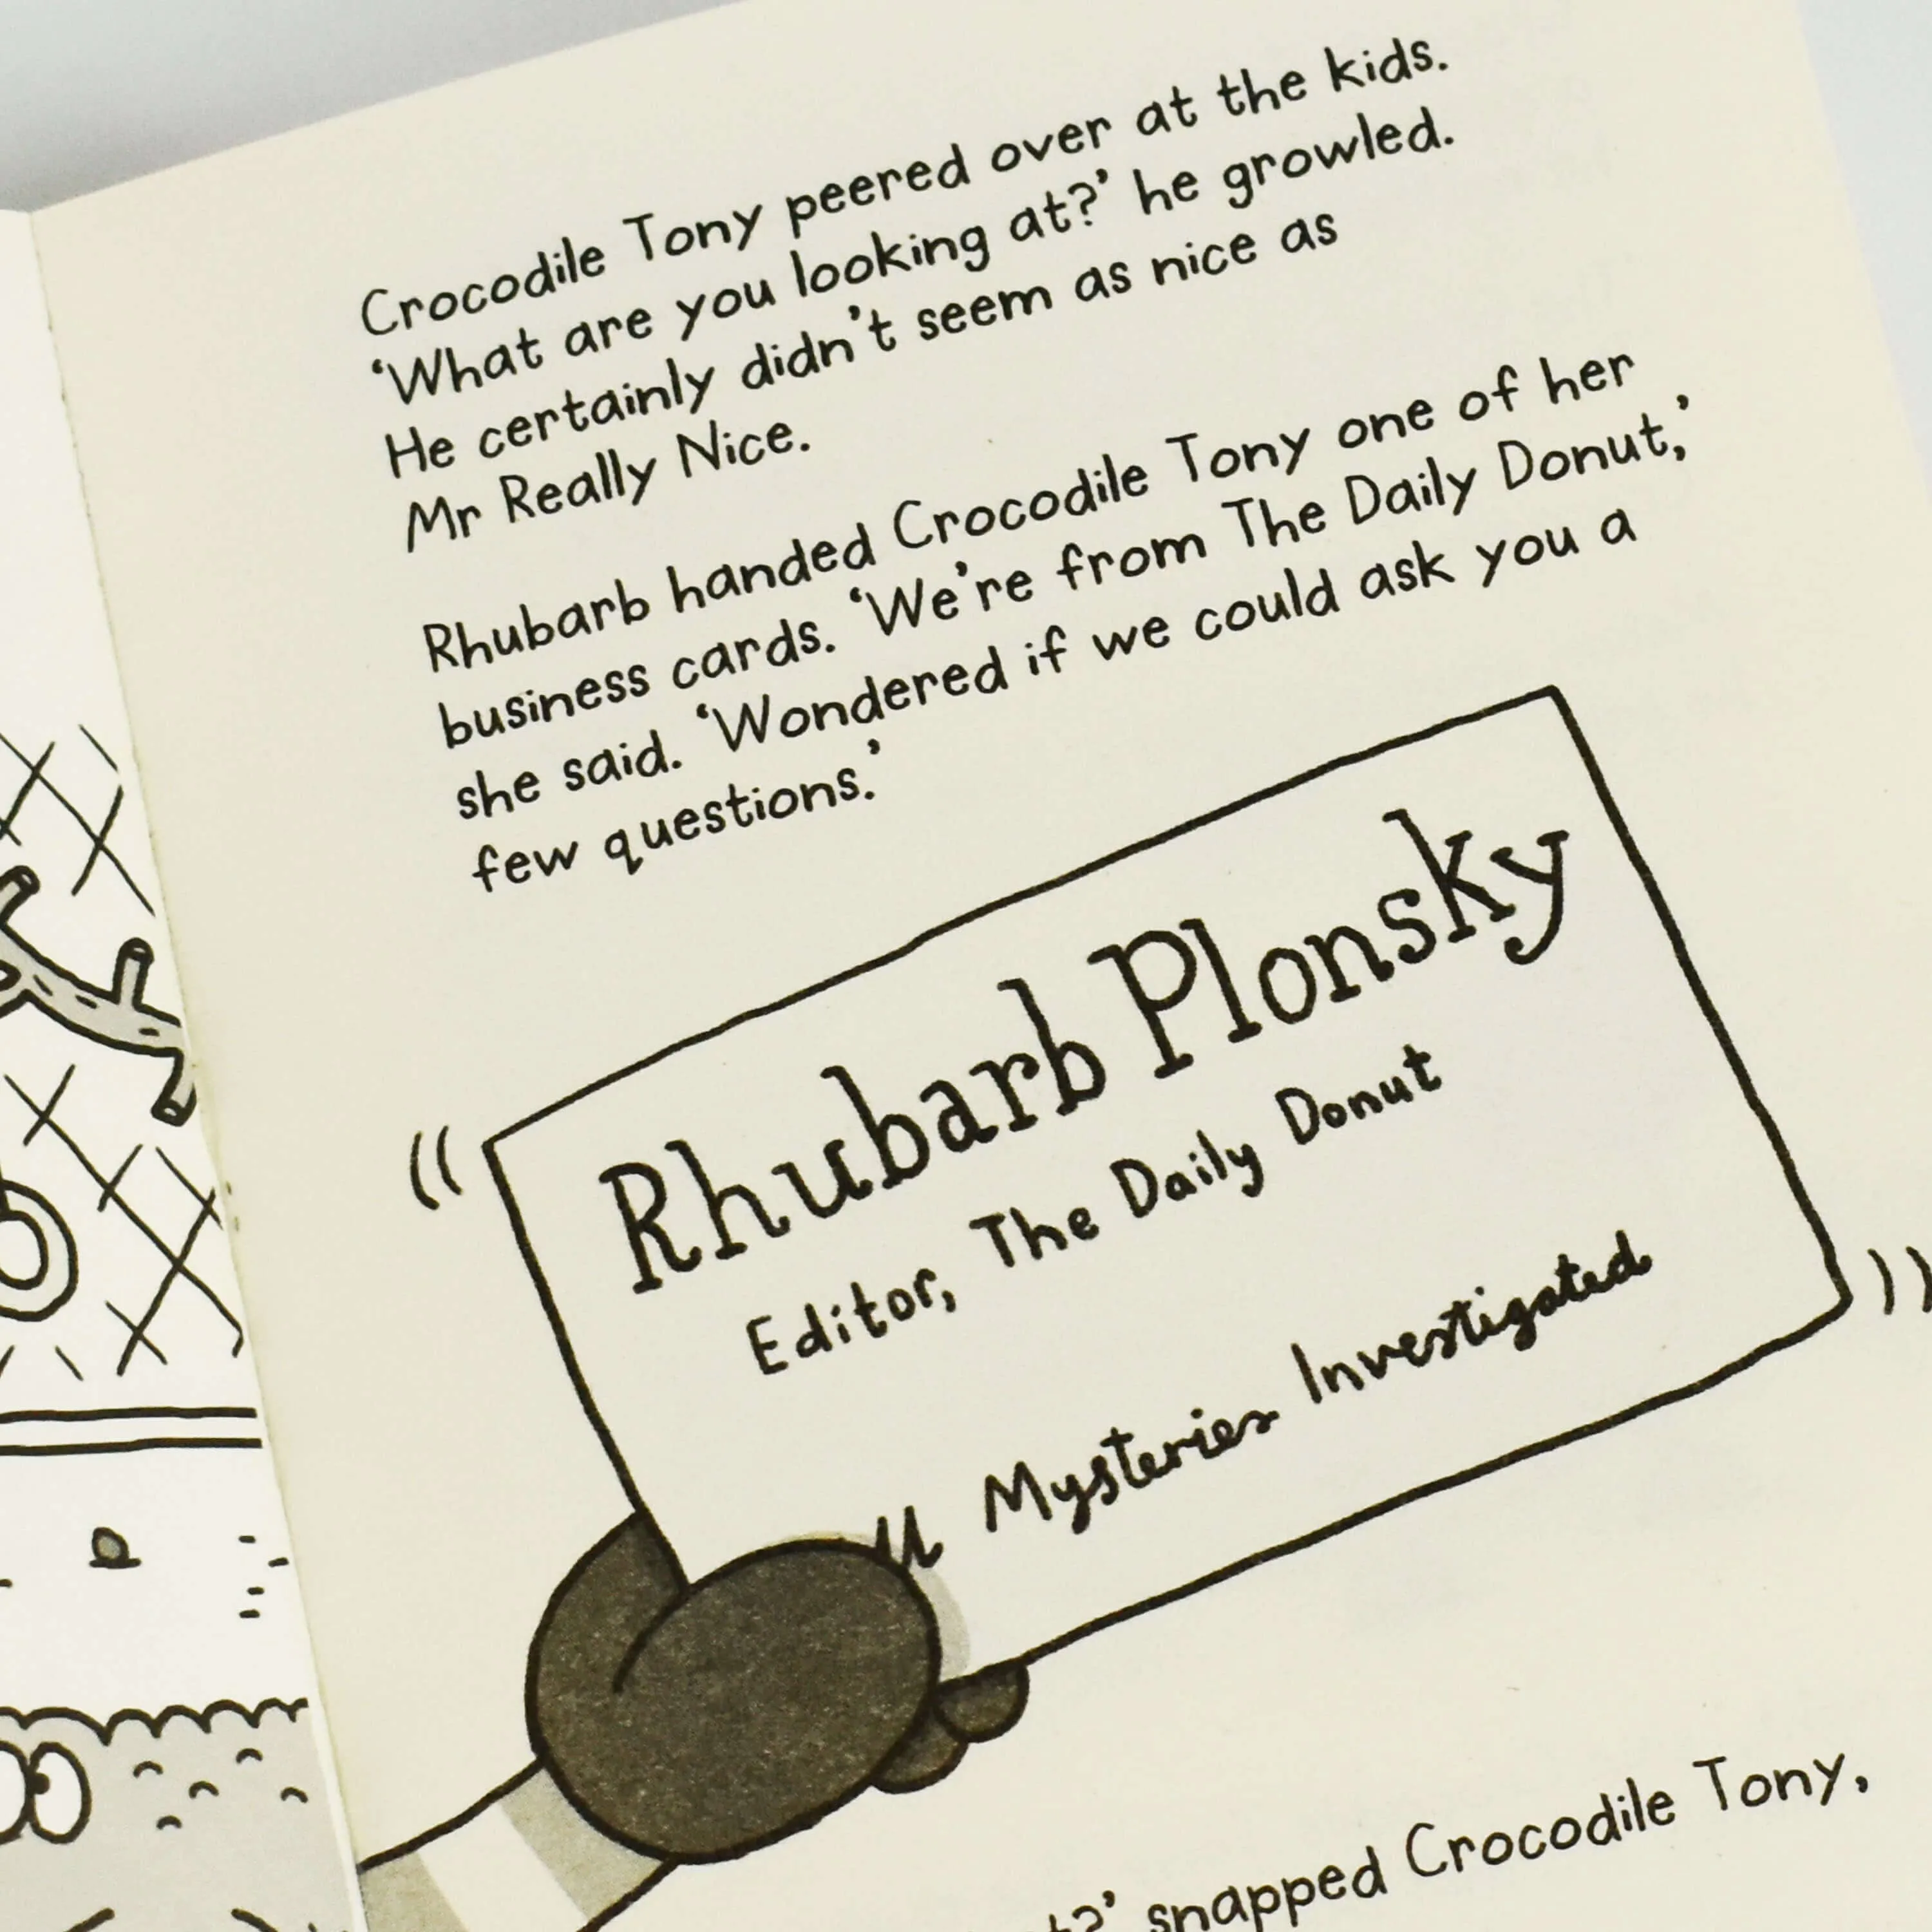 Crocodile Tony peered over at the kids.
‘What are you looking at?’ he growled.
He certainly didn’t seem as nice as
Mr Really Nice.
Rhubarb handed Crocodile Tony one of her
business cards. ‘We’re from The Daily Donut,’
she said. ‘Wondered if we could ask you a
few questions.’
Rhubarb Plonsky
Editor, The Daily Donut
Mysteries Investigated
snapped Crocodile Tony,